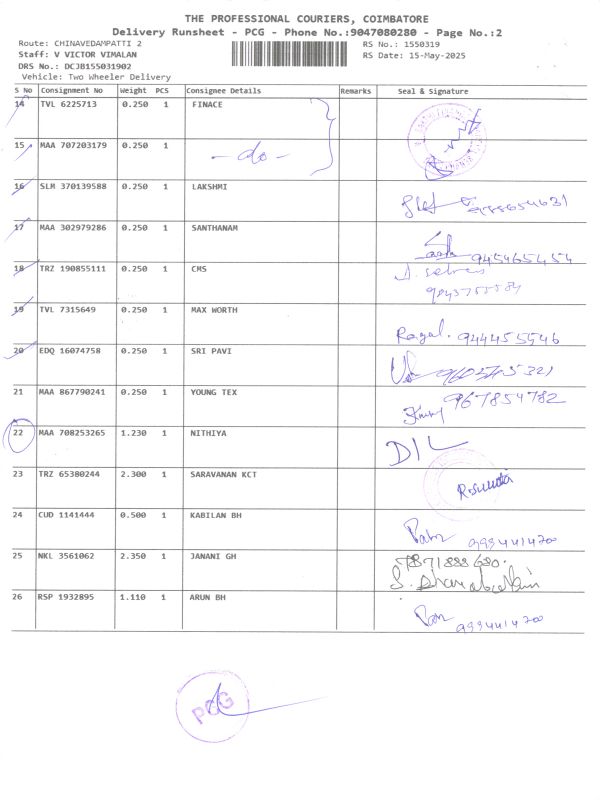 THE PROFESSIONAL COURIERS, COIMBATORE
Delivery Runsheet - PCG - Phone No.:9047080280 - Page No.:2
Route: CHINAVEDAMPATTI 2
RS No.: 1550319
Staff: V VICTOR VIMALAN
RS Date: 15-May-2025
DRS No.: DCJB155031902
Vehicle: Two Wheeler Delivery
S No Consignment No Weight PCS Consignee Details Remarks Seal & Signature
14 TVL 6225713 0.250 1 FINACE
15 MAA 707203179 0.250 1 - do -
16 SLM 370139588 0.250 1 LAKSHMI
17 MAA 302979286 0.250 1 SANTHANAM
18 TRZ 190855111 0.250 1 CMS
19 TVL 7315649 0.250 1 MAX WORTH 944455546
20 EDQ 16074758 0.250 1 SRI PAVI
21 MAA 867790241 0.250 1 YOUNG TEX 967854782
22 MAA 708253265 1.230 1 NITHIYA D/L
23 TRZ 65380244 2.300 1 SARAVANAN KCT
24 CUD 1141444 0.500 1 KABILAN BH 9994414700
25 NKL 3561062 2.350 1 JANANI GH 7871888680.
26 RSP 1932895 1.110 1 ARUN BH 9994414700
PCG